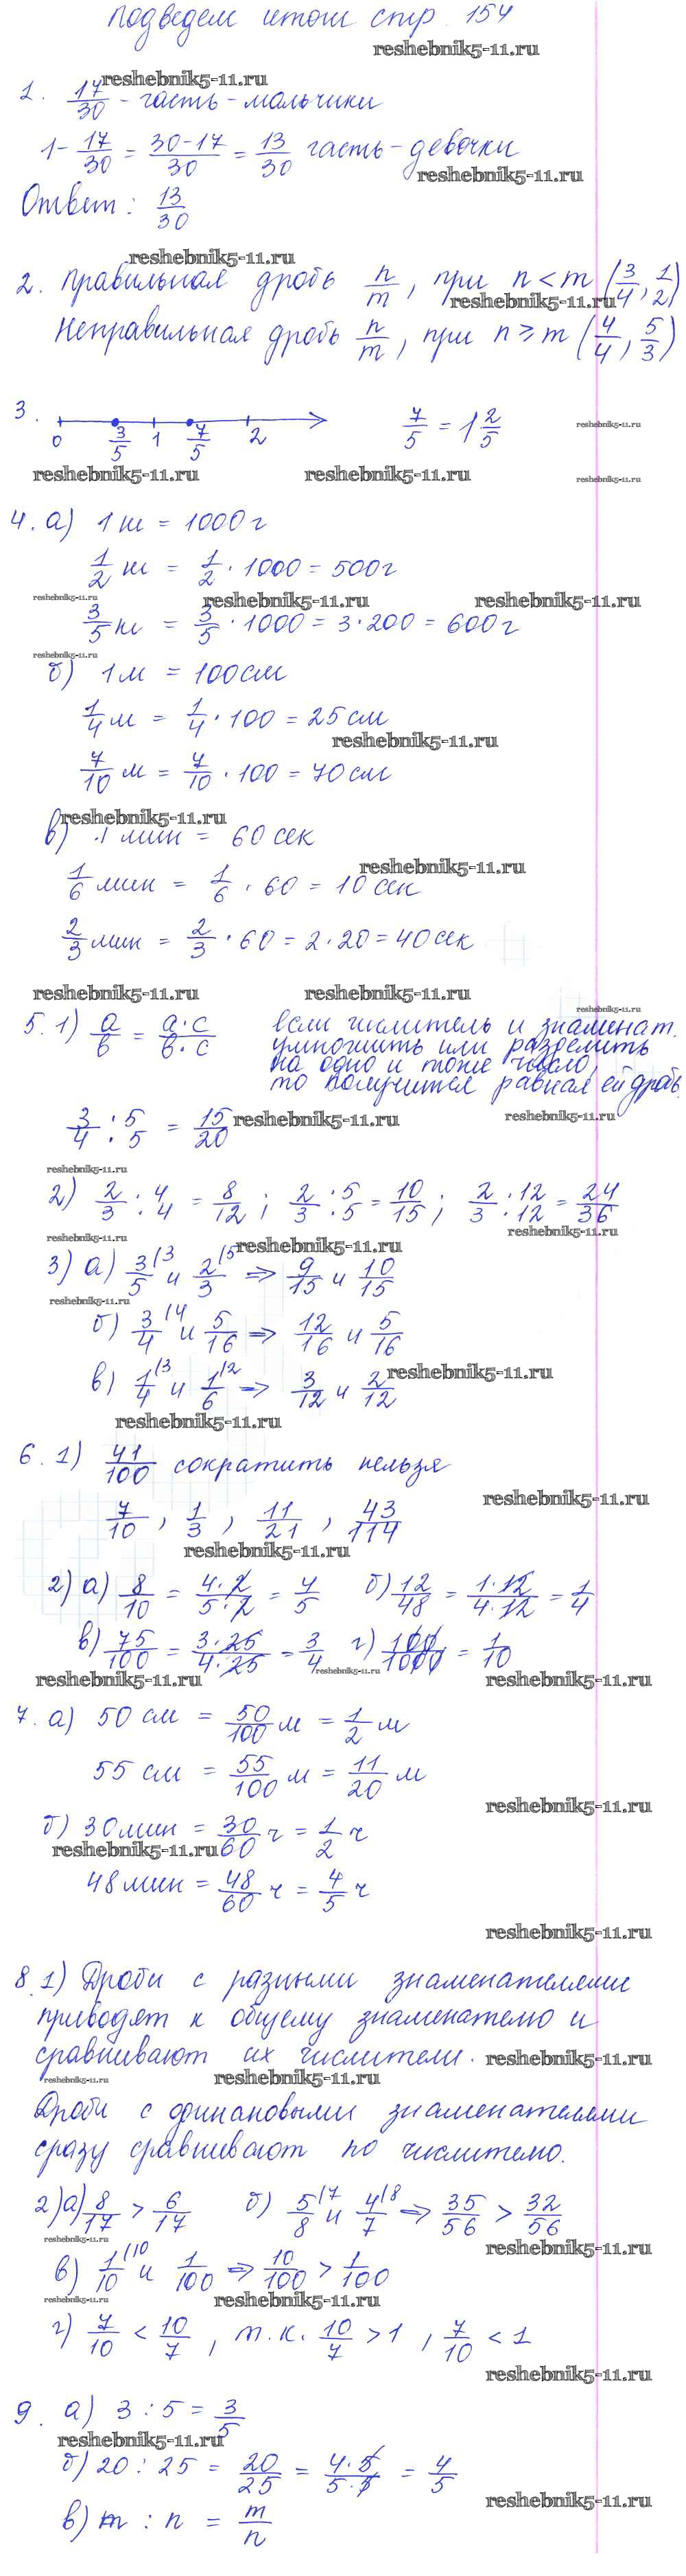 подведем итоги стр. 154
reshebnik5-11.ru
reshebnik5-11.ru
1. 17/30 - часть - мальчики
1 - 17/30 = (30-17)/30 = 13/30 часть - девочки
reshebnik5-11.ru
Ответ: 13/30
reshebnik5-11.ru
2. Правильная дробь n/m, при n < m (3/4, 1/2)
reshebnik5-11.ru
Неправильная дробь n/m, при n ⩾ m (4/4, 5/3)
3. 0 3/5 1 7/5 2 7/5 = 1 2/5
reshebnik5-11.ru
reshebnik5-11.ru reshebnik5-11.ru reshebnik5-11.ru
4. а) 1 кг = 1000 г
1/2 кг = 1/2 · 1000 = 500 г
reshebnik5-11.ru reshebnik5-11.ru reshebnik5-11.ru
3/5 кг = 3/5 · 1000 = 3 · 200 = 600 г
reshebnik5-11.ru
б) 1 м = 100 см
1/4 м = 1/4 · 100 = 25 см
reshebnik5-11.ru
7/10 м = 7/10 · 100 = 70 см
reshebnik5-11.ru
в) 1 мин = 60 сек
reshebnik5-11.ru
1/6 мин = 1/6 · 60 = 10 сек
2/3 мин = 2/3 · 60 = 2 · 20 = 40 сек
reshebnik5-11.ru reshebnik5-11.ru reshebnik5-11.ru
5. 1) a/b = (a·c)/(b·c) если числитель и знаменат.
умножить или разделить
на одно и тоже число,
то получится равная ей дробь
3/4 : 5/5 = 15/20
reshebnik5-11.ru reshebnik5-11.ru
reshebnik5-11.ru
2) 2/3 · 4/4 = 8/12; 2/3 · 5/5 = 10/15; 2/3 · 12/12 = 24/36
reshebnik5-11.ru
reshebnik5-11.ru reshebnik5-11.ru
3) а) 3/5 \3 и 2/3 \5 => 9/15 и 10/15
reshebnik5-11.ru
б) 3/4 \4 и 5/16 => 12/16 и 5/16
в) 1/4 \3 и 1/6 \2 => 3/12 и 2/12
reshebnik5-11.ru
reshebnik5-11.ru
6. 1) 41/100 сократить нельзя
reshebnik5-11.ru
7/10, 1/3, 11/21, 43/114
reshebnik5-11.ru
2) а) 8/10 = (4·2)/(5·2) = 4/5 б) 12/48 = (1·12)/(4·12) = 1/4
в) 75/100 = (3·25)/(4·25) = 3/4 г) 100/1000 = 1/10
reshebnik5-11.ru reshebnik5-11.ru reshebnik5-11.ru
7. а) 50 см = 50/100 м = 1/2 м
55 см = 55/100 м = 11/20 м
reshebnik5-11.ru
б) 30 мин = 30/60 ч = 1/2 ч
reshebnik5-11.ru
48 мин = 48/60 ч = 4/5 ч
reshebnik5-11.ru
8. 1) Дроби с разными знаменателями
приводят к общему знаменателю и
сравнивают их числители.
reshebnik5-11.ru
reshebnik5-11.ru reshebnik5-11.ru
Дроби с одинаковыми знаменателями
сразу сравнивают по числителю.
2) а) 8/17 > 6/17 б) 5/8 \7 и 4/7 \8 => 35/56 > 32/56
reshebnik5-11.ru reshebnik5-11.ru
в) 1/10 \10 и 1/100 => 10/100 > 1/100
reshebnik5-11.ru reshebnik5-11.ru
г) 7/10 < 10/7, т.к. 10/7 > 1, 7/10 < 1
reshebnik5-11.ru
9. а) 3 : 5 = 3/5
reshebnik5-11.ru
б) 20 : 25 = 20/25 = (4·5)/(5·5) = 4/5
reshebnik5-11.ru
в) m : n = m/n